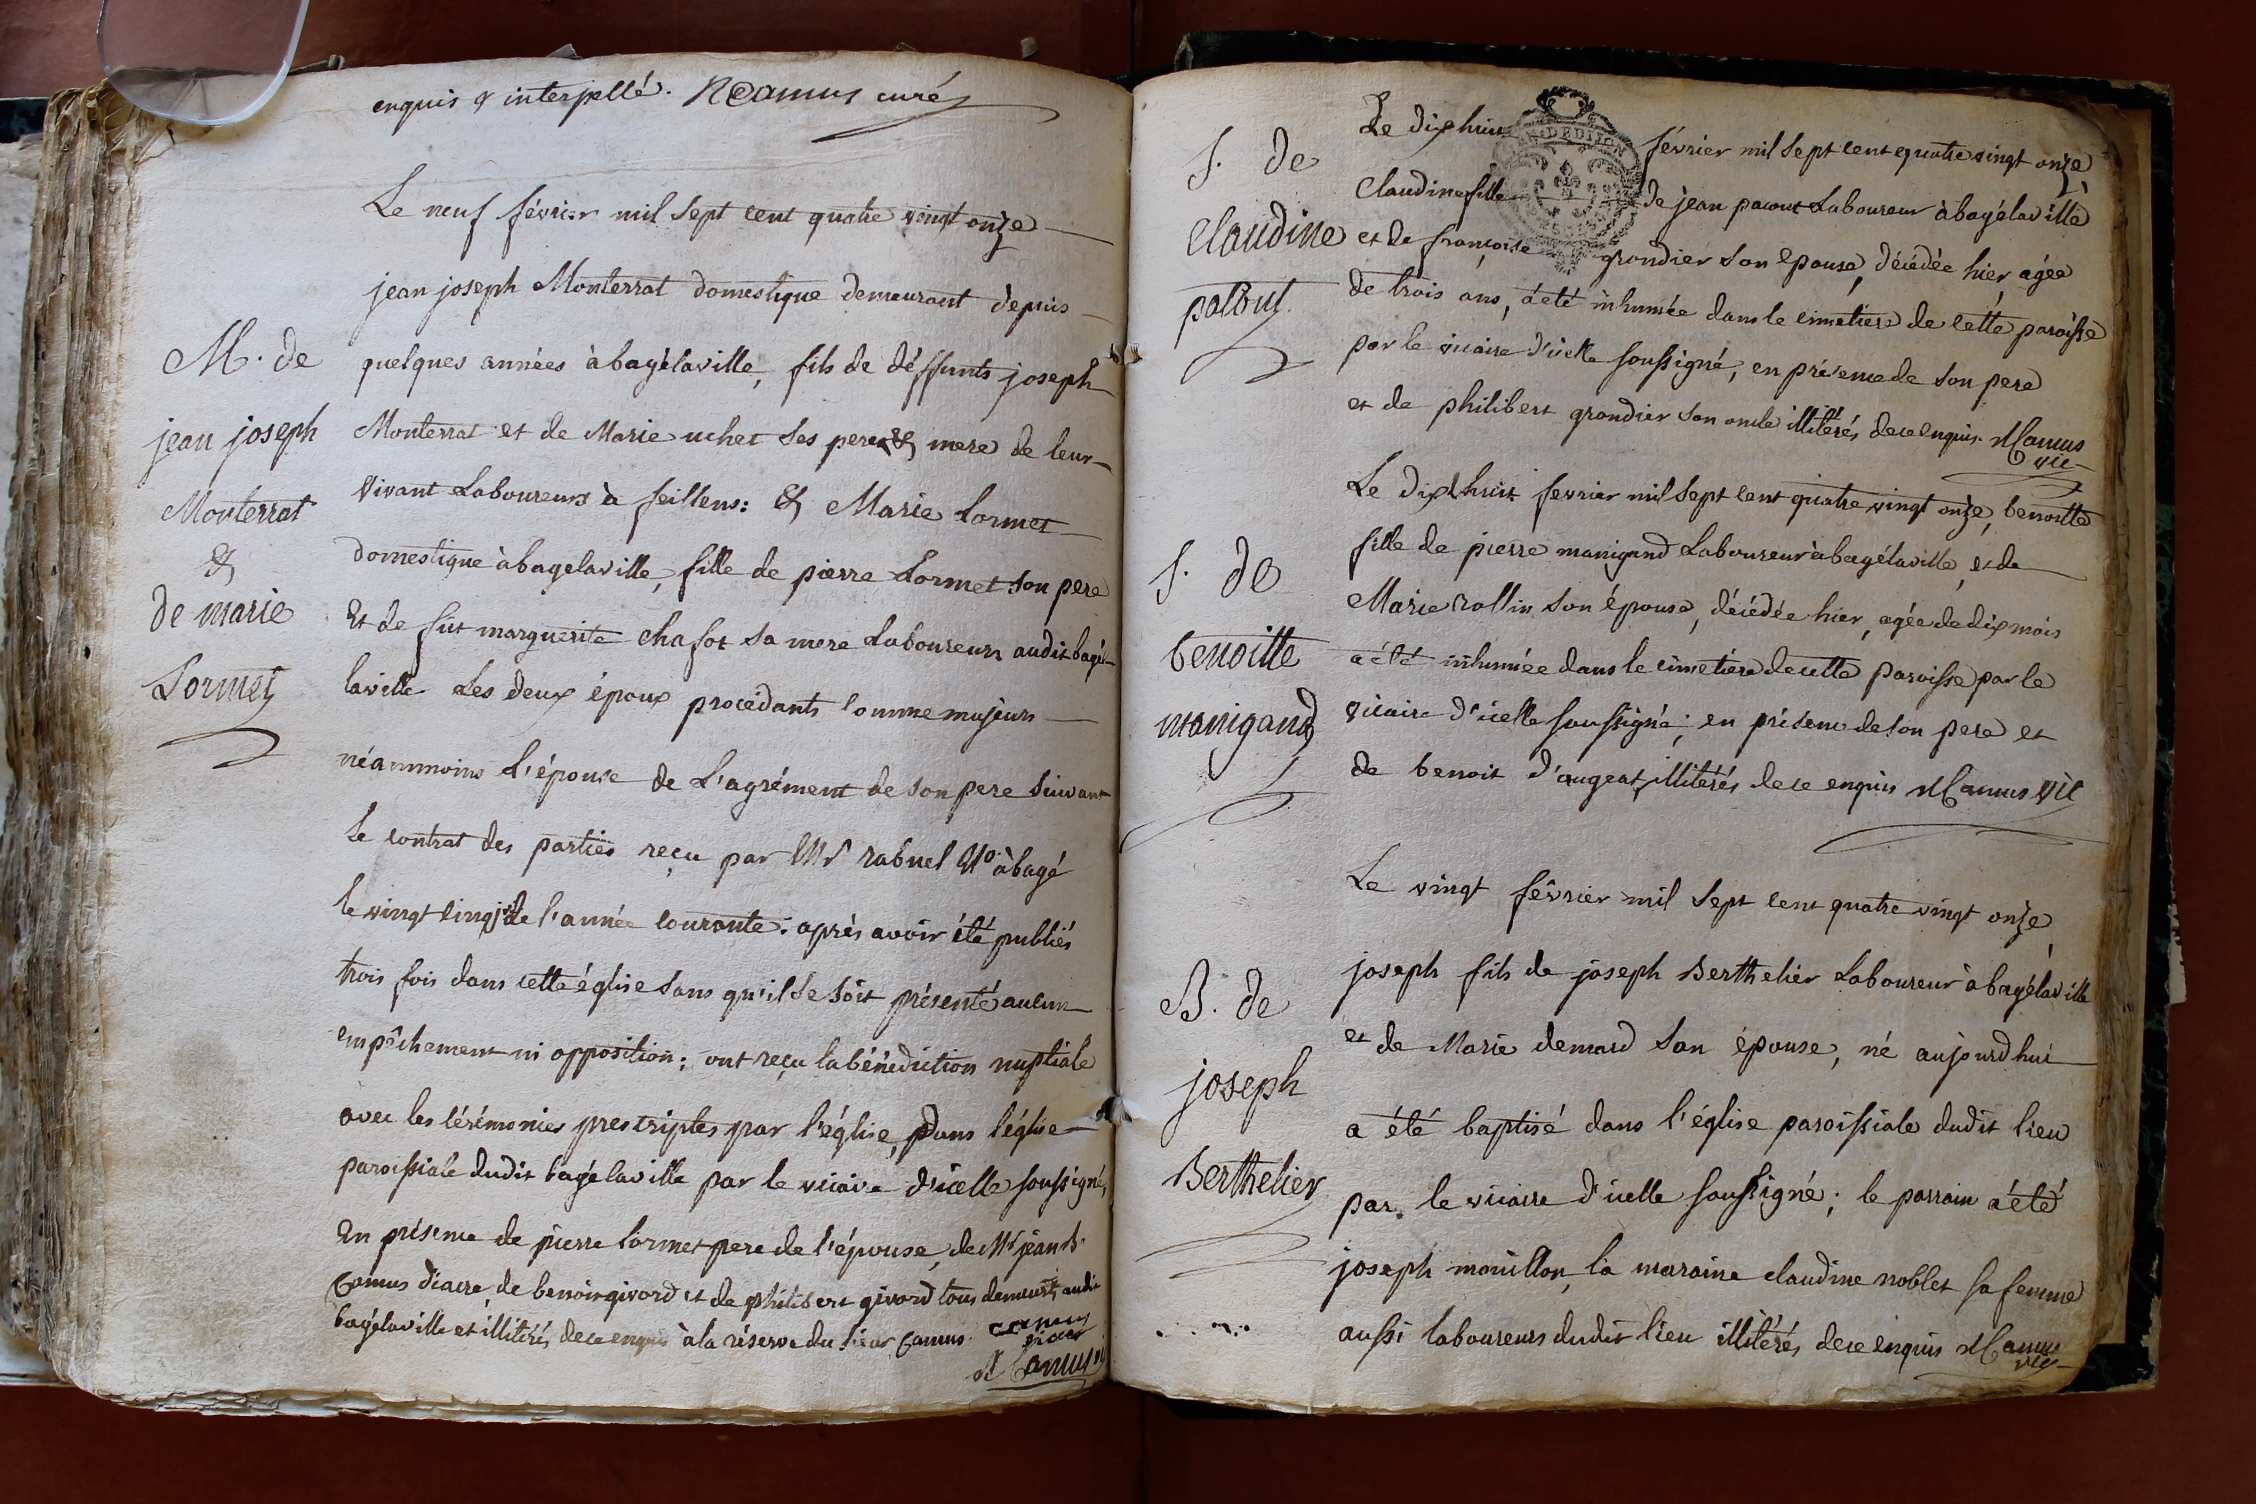 enquis & interpellé. Camus curé
Le neuf février mil sept cent quatre vingt onze
jean joseph Monterrat domestique demeurant depuis
M. de
quelques années à bagélaville, fils de déffunts joseph
jean joseph
Monterrat et de Marie uchet ses pere & mere de leur
Monterrat
vivant Laboureurs à feillens: & Marie Lormet
&
domestique à bagelaville, fille de pierre Lormet son pere
de marie
Et de fut marguerite chafot sa mere Laboureurs audit bagé
Lormet
laville Les deux époux procédants comme majeurs
néammoins L'épouse de L'agrément de son pere suivant
Le contrat des parties reçu par Mr rabuel No à bagé
le vingt cinq de l'année courante: après avoir été publiés
trois fois dans cette église sans qu'il se soit présenté aucun
empêchement ni opposition; ont reçu la bénédiction nuptiale
avec les cérémonies prescriptes par l'église, dans l'église
paroissiale dudit bagélaville par le vicaire d'icelle soussigné,
En présence de pierre Lormet pere de l'épouse, de Mr jean B.
Camus diacre de benoit givord et de philibert givord tous demeurts audit
bagélaville et illitérés de ce enquis à la réserve du sieur Camus. camus
diacre
Camus
DE DIJON
Le dix huit février mil sept cent quatre vingt onze
S. de
Claudine fille de jean pacout Laboureur à bagélaville
Claudine
et de françoise grondier son epouse, décédée hier, agée
pacout
de trois ans, a été inhumée dans le cimetiere de cette paroisse
par le vicaire d'icelle soussigné, en présence de son pere
et de philibert grondier son oncle illitérés de ce enquis. Camus
vic
Le dix huit fevrier mil sept cent quatre vingt onze, benoitte
S. de
fille de pierre manigand Laboureur à bagélaville, et de
Marie rollin son épouse, décédée hier, agée de dix mois
benoitte
a été inhumée dans le cimetiere de cette paroisse par le
manigand
vicaire d'icelle soussigné; en présence de son pere et
de benoit d'augeat, illitérés de ce enquis Camus vic
Le vingt février mil sept cent quatre vingt onze
B. de
joseph fils de joseph Berthelier Laboureur à bagélaville
et de Marie demard son épouse, né aujourd'hui
joseph
a été baptisé dans l'église paroissiale dudit lieu
Berthelier
par le vicaire d'icelle soussigné; le parrain a été
joseph mouillon, la maraine claudine noblet sa femme
aussi laboureurs dudit lieu illitérés de ce enquis Camus
vic